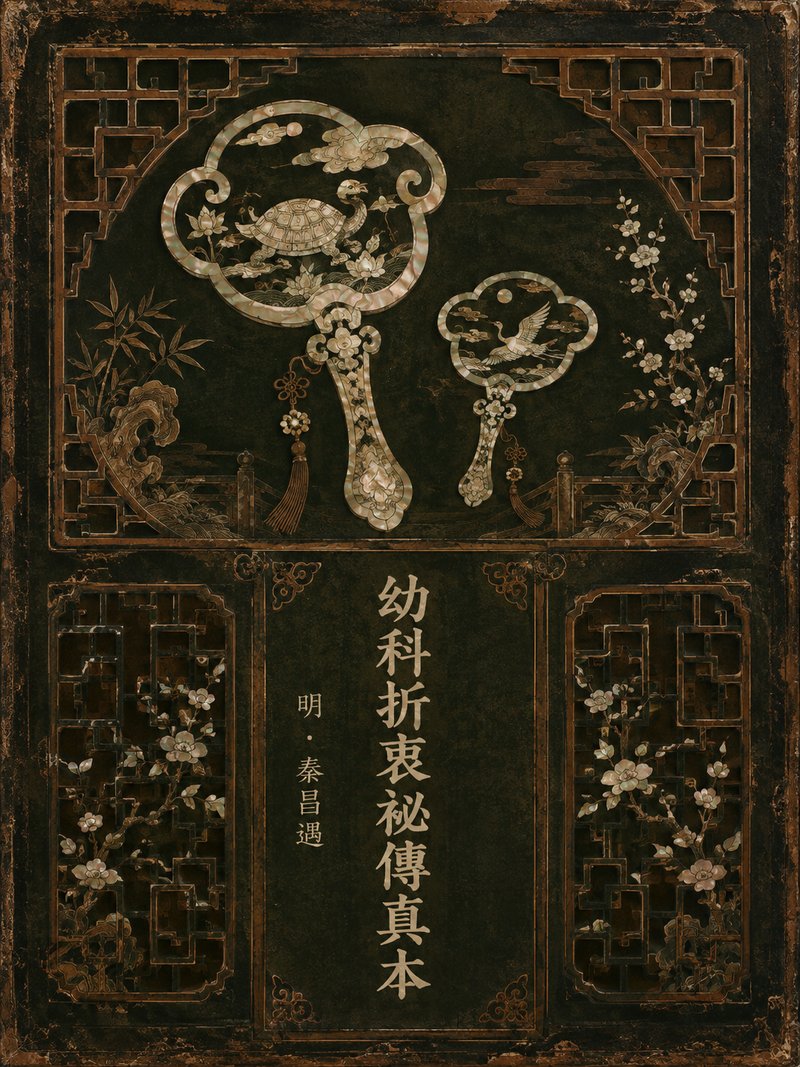 幼科折衷祕傳真本
明·秦昌遇